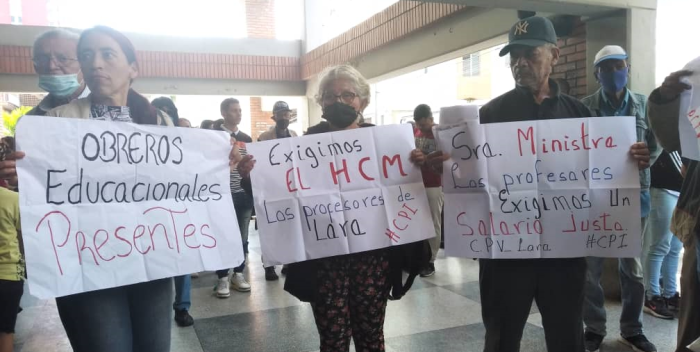 OBREROS
Educacionales
Presentes
Exigimos
EL HCM
Los profesores de
Lara
#CPI
Sra. Ministra
Los profesares
Exigimos Un
Salario Justo.
CPV_Lara #CPI